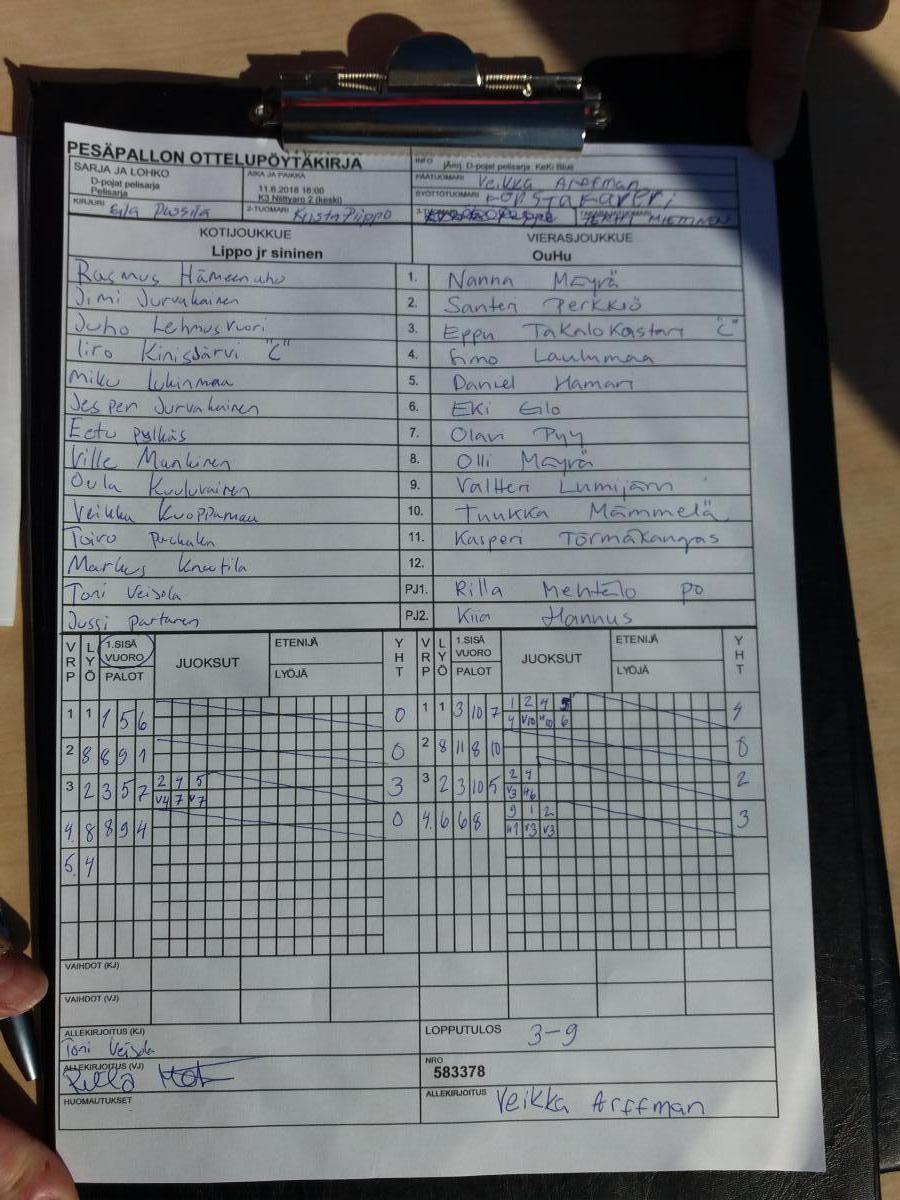 PESÄPALLON OTTELUPÖYTÄKIRJA
SARJA JA LOHKO
D-pojat pelisarja
Pelisarja
AIKA JA PAIKKA
11.6.2018 18:00
K3 Niittyaro 2 (keski)
INFO D-pojat pelisarja KeKi Blue
PÄÄTUOMARI Veikka Arffman
SYÖTTÖTUOMARI
KIRJURI Eila Pussila
2-TUOMARI Krista Piippo
MIETTINEN
KOTIJOUKKUE
Lippo jr sininen
VIERASJOUKKUE
OuHu
Rasmus Hämeenaho 1. Nanna Mäyrä
Jimi Jurvakainen 2. Santeri Perkkiö
Juho Lehmusvuori 3. Eppu Takalokastari "C"
Iiro Kinisjärvi "C" 4. Simo Laulumaa
Miku Luhinmaa 5. Daniel Hamari
Jesper Jurvakainen 6. Eki Eilo
Eetu Pylkäs 7. Olavi Pyy
Ville Mankinen 8. Olli Mäyrä
Oula Kuuluvainen 9. Valtteri Lumijärvi
Veikka Kuoppamaa 10. Tuukka Mämmelä
Toivo 11. Kasperi Törmäkangas
Markus Knuutila 12.
Toni Veisola PJ1. Rilla Mehtälö po
Jussi Partanen PJ2. Kiia Hannus
VRP LYÖ 1.SISÄ VUORO PALOT JUOKSUT ETENIJÄ LYÖJÄ YHT VRP LYÖ 1.SISÄ VUORO PALOT JUOKSUT ETENIJÄ LYÖJÄ YHT
1 1 1 5 6 0 1 1 3 10 7 1 2 4 5 4
4 V10 H10 6
2 8 8 9 1 0 2 8 11 8 10 0
3 2 3 5 7 2 4 5 3 3 2 3 10 5 2 4 2
V4 7 V7 V3 H6
4. 8 8 9 4 0 4. 6 6 8 9 1 2 3
H1 V3 V3
5. 4
VAIHDOT (KJ)
VAIHDOT (VJ)
ALLEKIRJOITUS (KJ)
Toni Veisola
LOPPUTULOS 3-9
ALLEKIRJOITUS (VJ)
Rilla
NRO
583378
HUOMAUTUKSET
ALLEKIRJOITUS Veikka Arffman